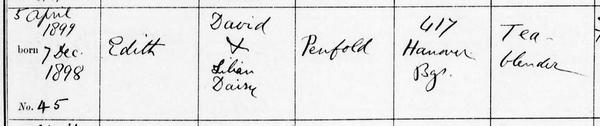 5 April
1899
born 7 Dec.
1898
No. 45
Edith
David
+
Lilian
Daisy
Penfold
417
Hanover
Bgs.
Tea-
blender